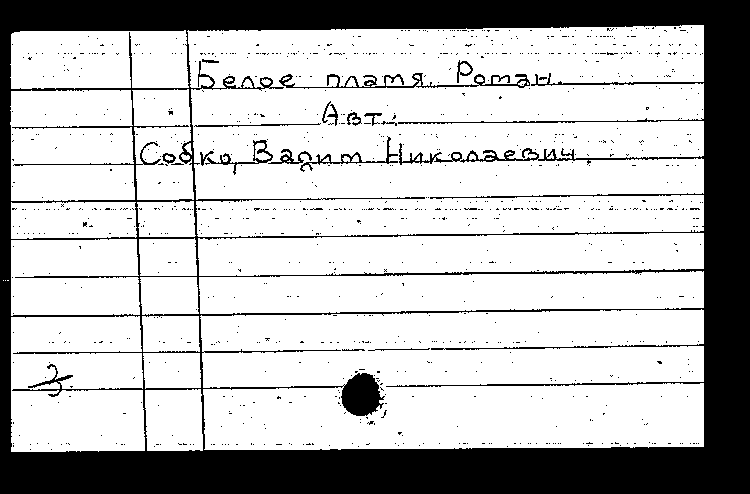 Белое пламя. Роман.
Авт.:
Собко, Вадим Николаевич.
З